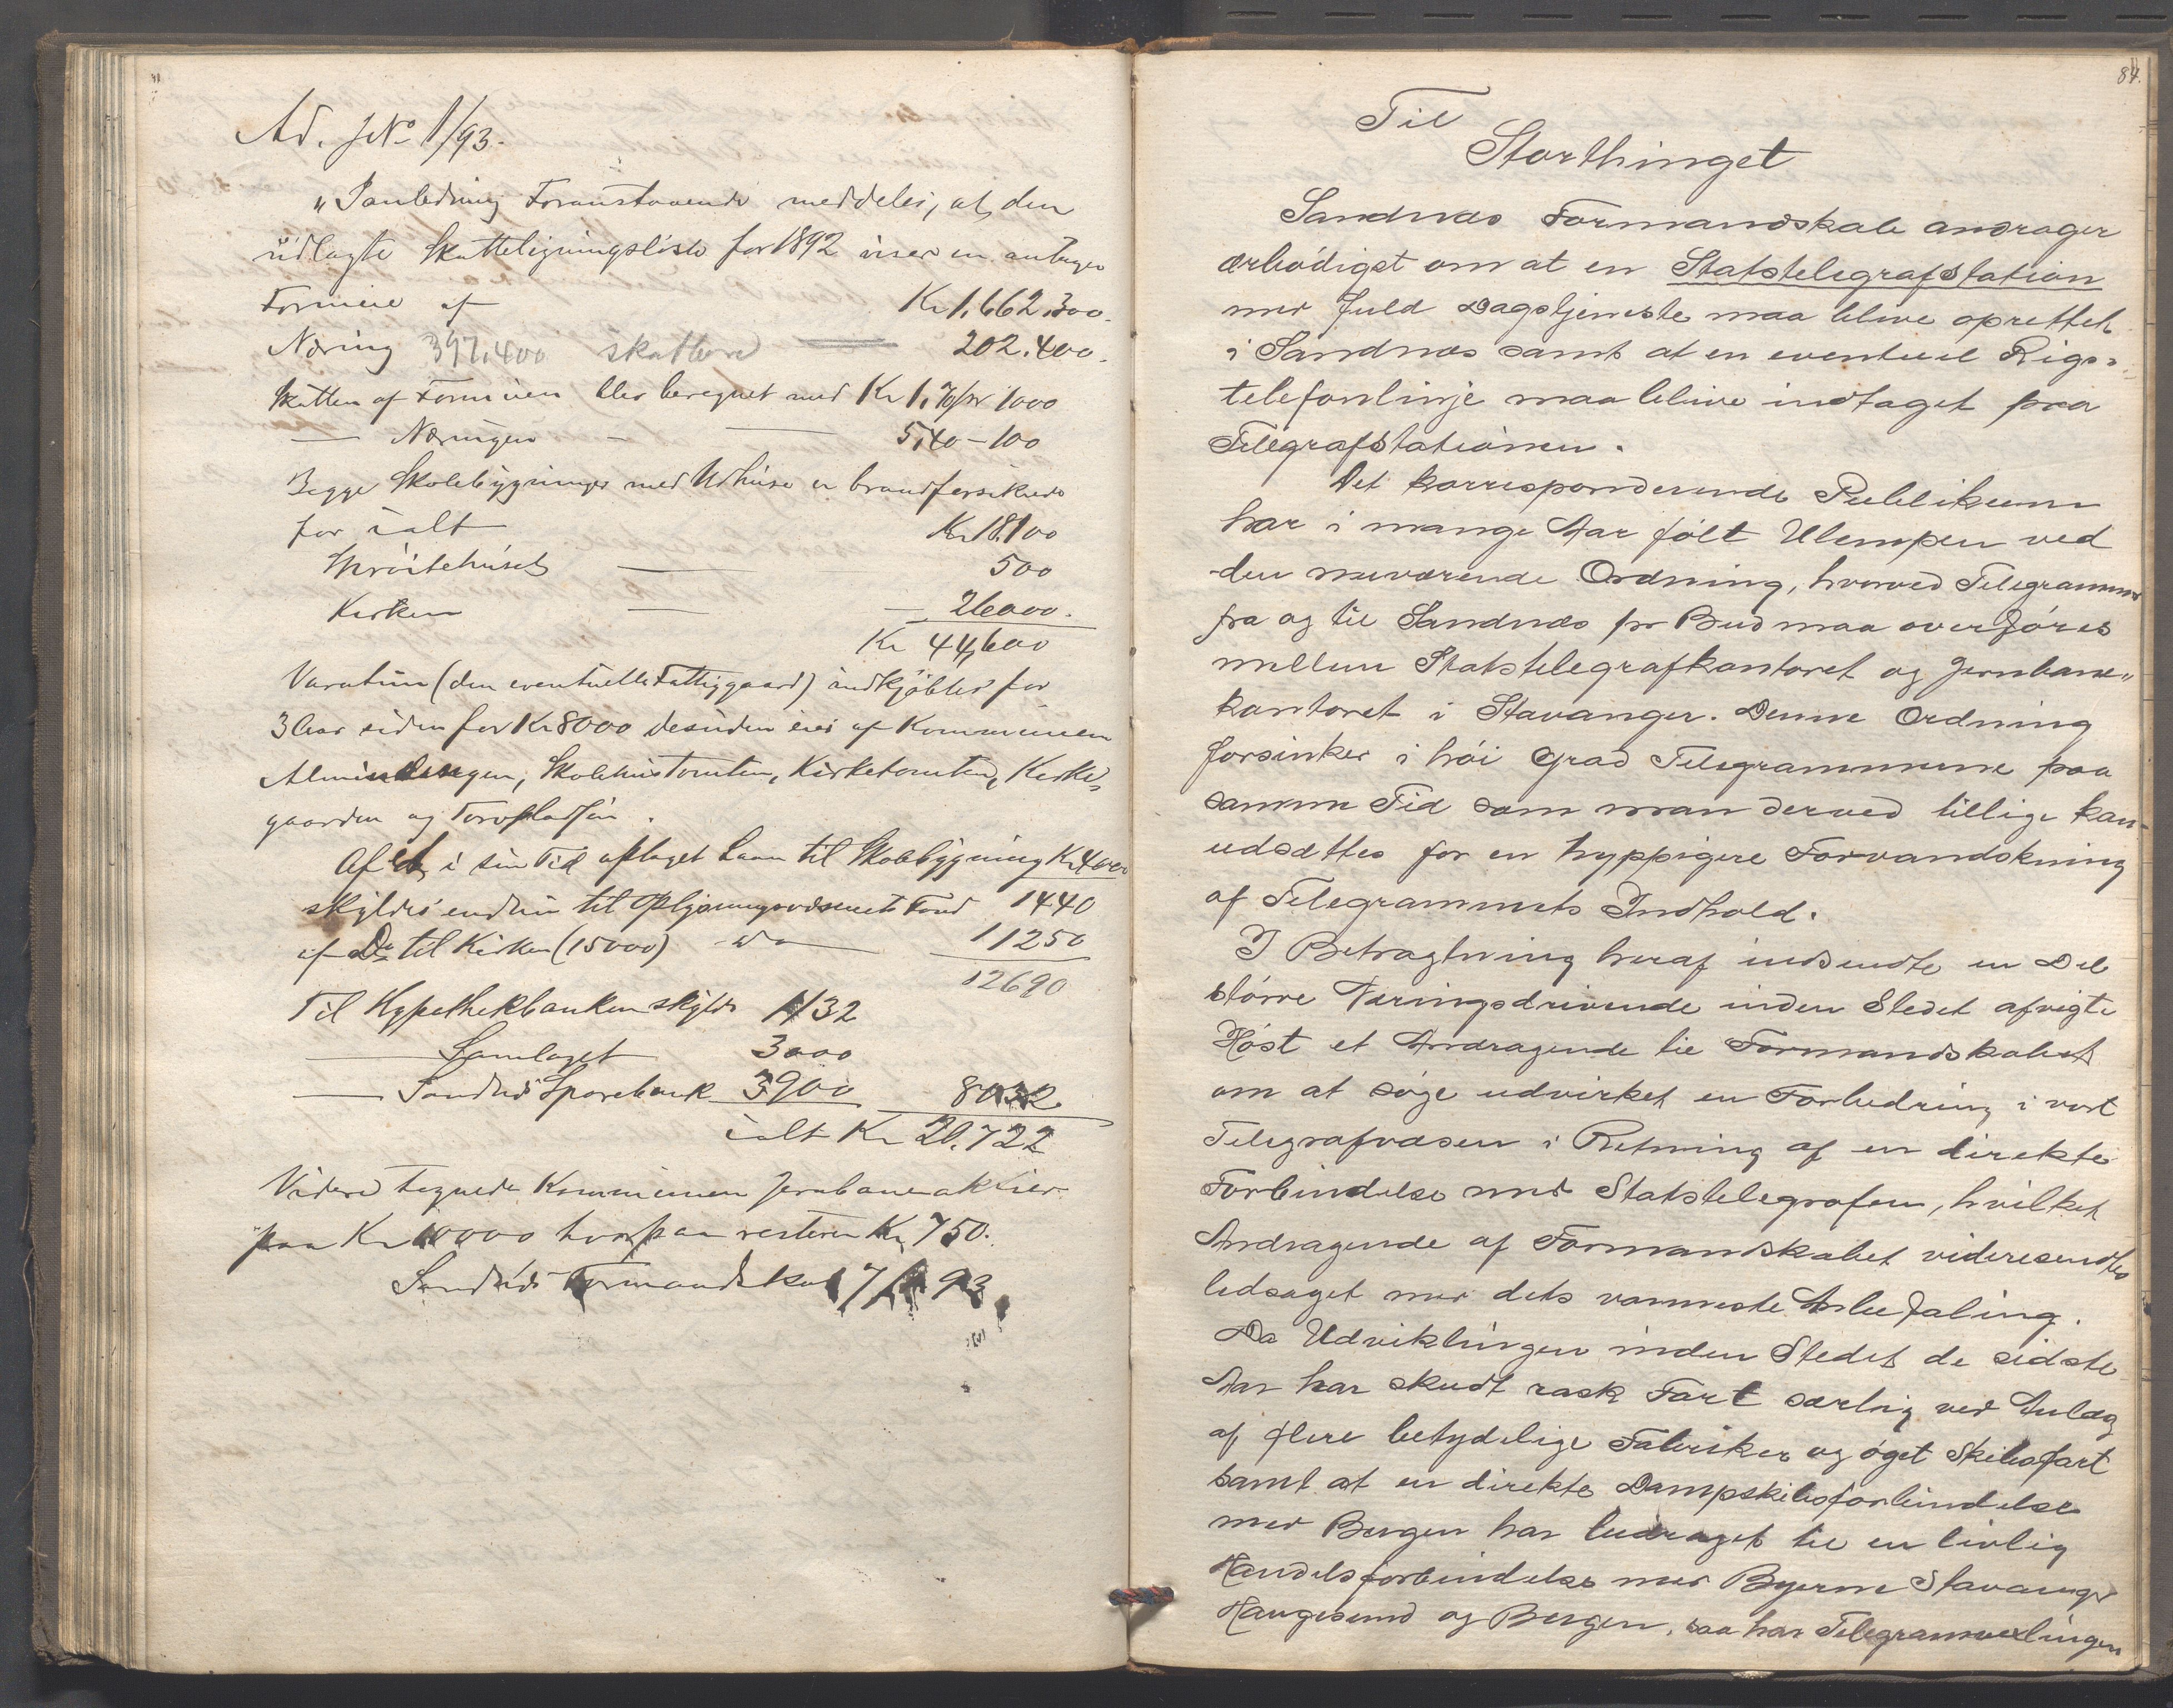 Ad. JNo 1/93.
"I anledning Foranstaaende meddeles, at den
udlagte Skatteligningsliste for 1892 viser en antagen
Formue af Kr 1,662,300.
Næring 397,400 skatbare 202,400.
Skatten af Formuen blev beregnet med Kr 1,70 pr 1000
— Næringen — 5,40 – 100
Begge Skolebygninger med Udhuse er brandforsikrede
for ialt Kr 18100
Sprøitehuset — 500
Kirken — 26000.
Kr 44,600
Varatun (den eventuelle Fattiggaard) indkjøbtes for
3 Aar siden for Kr 8000 desuden eies af Kommunen
Almindingen, Skolehustomten, Kirketomten, Kirke=
gaarden og Torvpladsen.
Af et i sin Tid optaget Laan til Skolebygning Kr 4000
skyldes endnu til Oplysningsvæsenets Fond 1440
af Do til Kirken (15000) do 11250
12690
Til Hypothekbanken skyldes 1132
— Samlaget 3000
— Sandnæs Sparebank 3900 8032
ialt Kr 20.722
Videre tegnede Kommunen Jernbaneaktier
paa Kr 10000 hvorpaa resterer Kr 750.
Sandnæs Formandskab 7/1 93
84.
Til
Storthinget
Sandnæs Formandskab andrager
ærbødigst om at en Statstelegrafstation
med fuld Dagstjeneste maa blive oprettet
i Sandnæs samt at en eventuel Rigs=
telefonlinje maa blive indtaget paa
Telegrafstationen.
Det korresponderende Publikum
har i mange Aar følt Ulempen ved
den nuværende Ordning, hvorved Telegrammer
fra og til Sandnæs pr Bud maa overføres
mellem Statstelegrafkontoret og Jernbane=
kontoret i Stavanger. Denne Ordning
forsinker i høi Grad Telegrammerne paa
samme Tid som man derved tillige kan
udsættes for en hyppigere Forvandskning
af Telegrammets Indhold.
I Betragtning heraf indsendte en Del
større Næringsdrivende inden Stedet afvigte
Høst et Andragende til Formandskabet
om at søge udvirket en Forbedring i vort
Telegrafvæsen i Retning af en direkte
Forbindelse med Statstelegrafen, hvilket
Andragende af Formandskabet videresendtes
ledsaget med dets varmeste Anbefaling.
Da Udviklingen inden Stedet de sidste
Aar har skudt rask Fart særlig ved Anlæg
af flere betydelige Fabriker og øget Skibsfart
samt at en direkte Dampskibsforbindelse
med Bergen har bidraget til en livlig
Handelsforbindelse med Byerne Stavanger
Haugesund og Bergen, saa har Telegramvexlingen